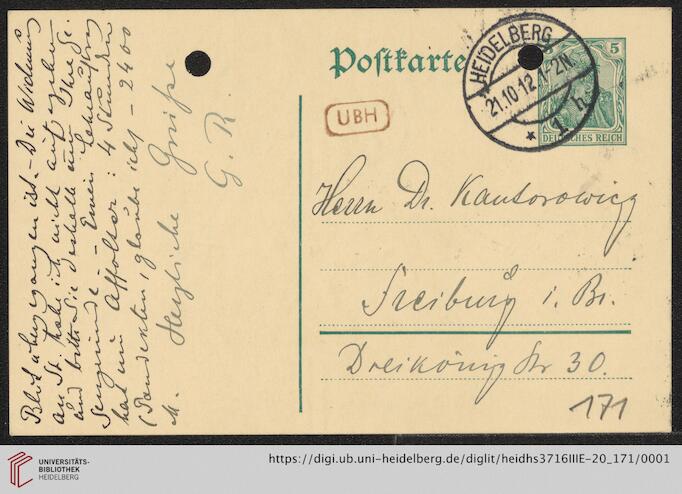 Postkarte
HEIDELBERG
21.10.12.1-2N.
* 1 h.
5
DEUTSCHES REICH
UBH
Herrn Dr. Kantorowicz
Freiburg i. Br.
Dreikönigstr 30.
171
Blick übergegangen ist. - Die Widmung
an St. habe ich nicht aufgegeben
und bitte Sie deshalb um Ihre
- Einen Lehrauftrag
hat nur Affolter: 4 Stunden
(Pandekten, glaube ich) - 2400
M. Herzliche Grüße
G. R.
UNIVERSITÄTS-
BIBLIOTHEK
HEIDELBERG
https://digi.ub.uni-heidelberg.de/diglit/heidhs3716IIIE-20_171/0001